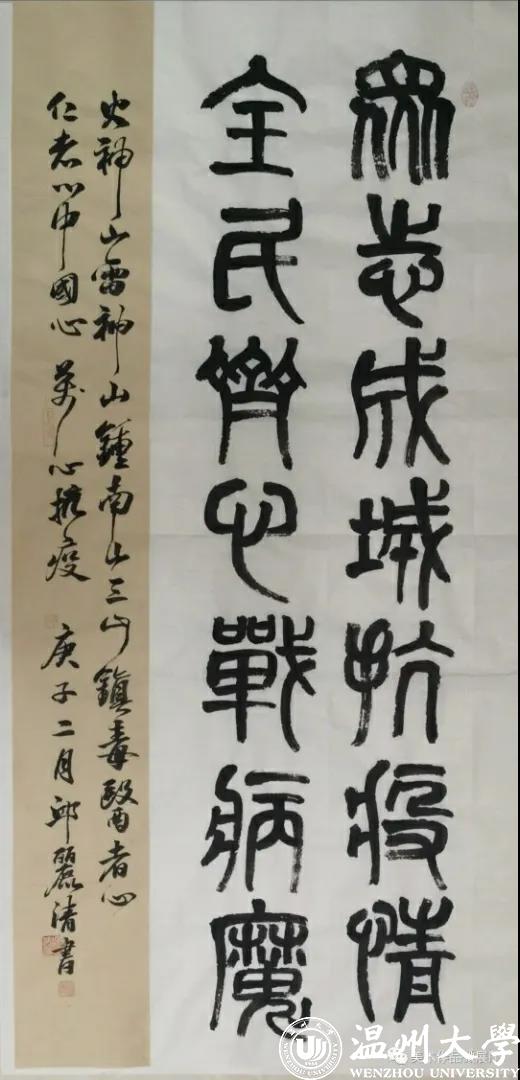 眾志成城抗疫情
全民齊心戰病魔
火神山雷神山鍾南山三山鎮毒醫者心
仁者心中國心萬心擁疫
庚子二月邱麗清書
温州大學
WENZHOU UNIVERSITY